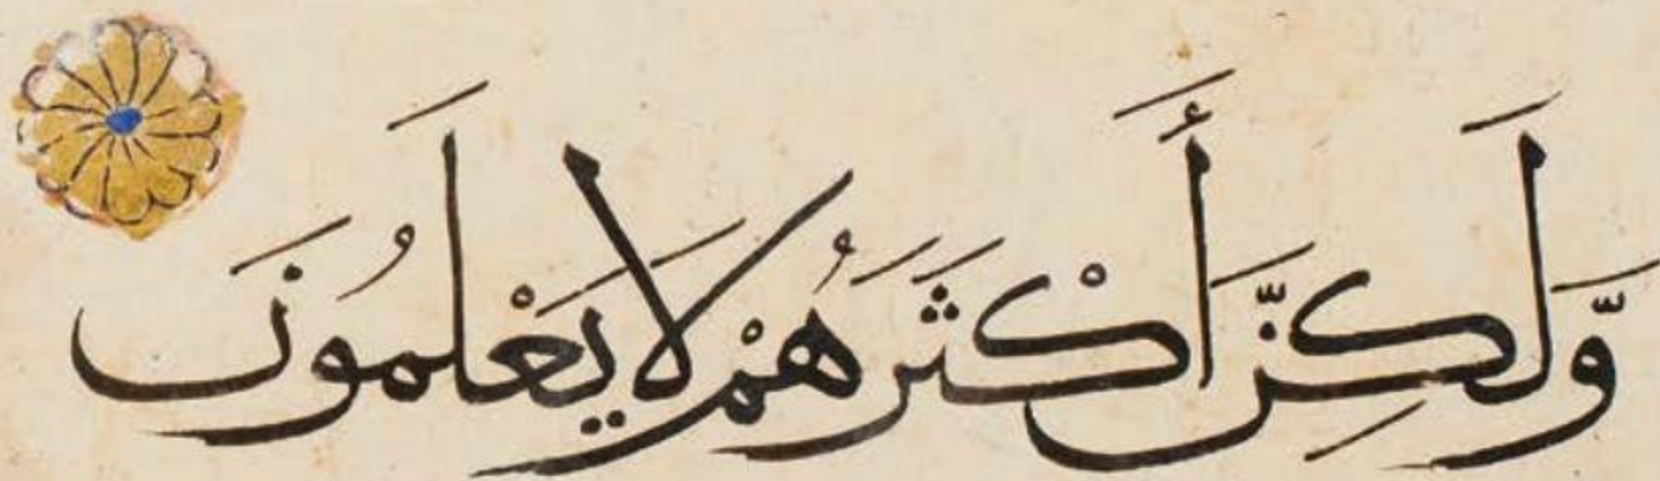 وَّلَكِنَّ أَكْثَرَهُمْ لَا يَعْلَمُونَ